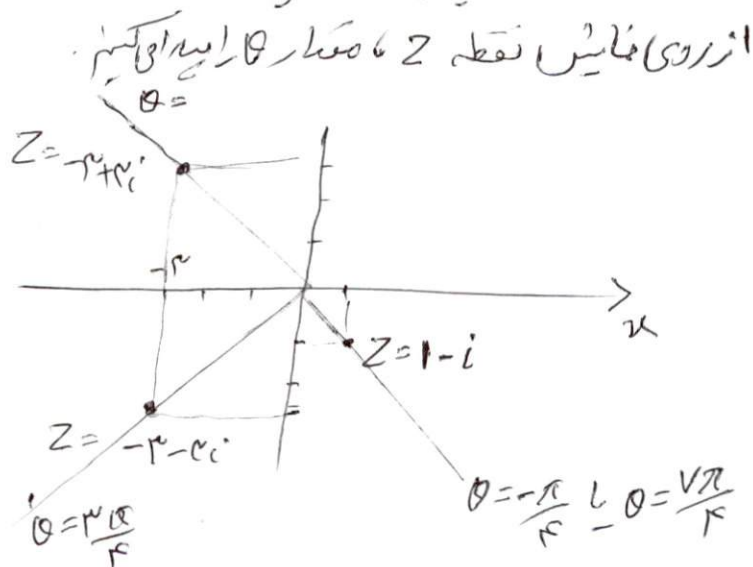 از روی نمایش نقطه Z ، مقدار θ را پیدا می کنیم.
θ =
Z = -۳+۳i
-۳
x
Z = 1 - i
Z = -۳-۳i
θ = -π/۴ یا θ = ۷π/۴
θ = ۳π/۴